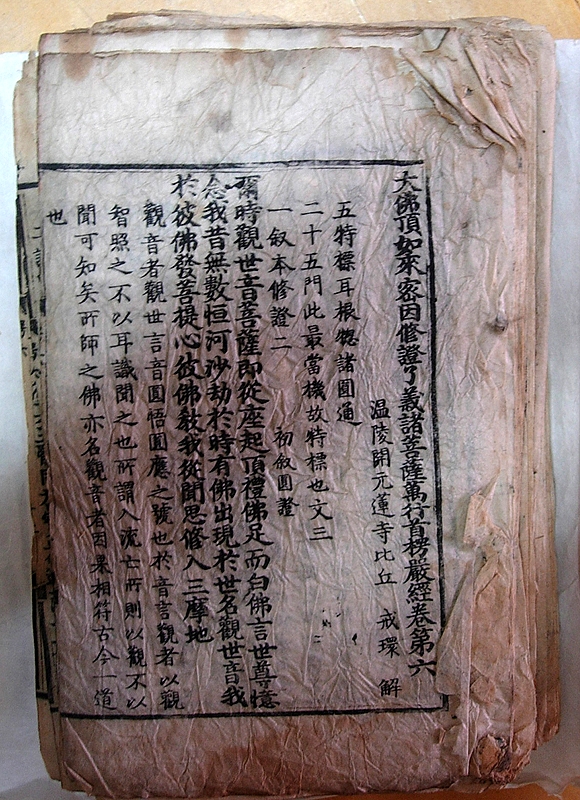 大佛頂如來密因修證了義諸菩薩萬行首楞嚴經卷第六
温陵開元蓮寺比丘 戒環 解
五特標耳根總諸圓通
二十五門此最當機故特標也文三
一叙本修證二 初叙圓證
爾時觀世音菩薩即從座起頂禮佛足而白佛言世尊憶
念我昔無數恒河沙劫於時有佛出現於世名觀世音我
於彼佛發菩提心彼佛教我從聞思修入三摩地
觀音者觀世言音圓悟圓應之號也於音言觀者以觀
智照之不以耳識聞之也所謂入流亡所則以觀不以
聞可知矣所師之佛亦名觀音者因果相符古今一道
也